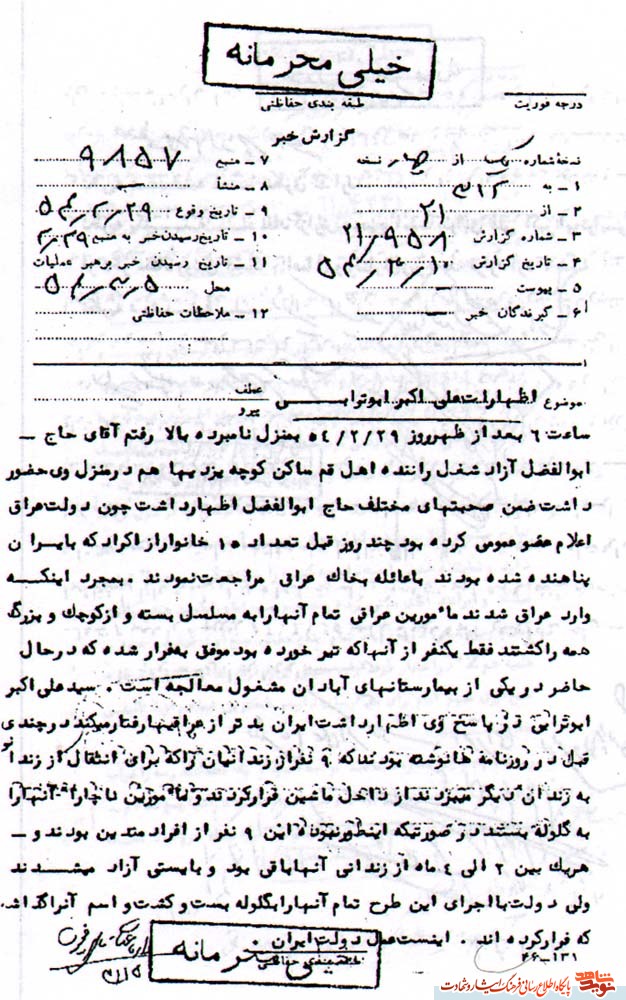 خیلی محرمانه
درجه فوریت طبقه بندی حفاظتی
گزارش خبر
نسخهٔ شماره یک از نسخه
۷ ـ منبع ۹۸۵۷
۱ ـ به ۳۱۲
۸ ـ منشأ
۲ ـ از ۲۱
۹ ـ تاریخ وقوع ۵۴/۲/۲۹
۳ ـ شماره گزارش ۲۱/۹۵۰۸
۱۰ ـ تاریخ رسیدن خبر به منبع
۴ ـ تاریخ گزارش
۱۱ ـ تاریخ رسیدن خبر برهبر عملیات
۵ ـ پیوست
محل ۵۴/۳/۵
۶ ـ گیرندگان خبر
۱۲ ـ ملاحظات حفاظتی
موضوع اظهارات علی اکبر ابوترابی عطف
پیرو
ساعت ۶ بعد از ظهر روز ۵۴/۲/۲۹ بمنزل نامبرده بالا رفتم آقای حاج ـ
ابوالفضل آزاد شغل راننده اهل قم ساکن کوچه یزدیها هم در منزل وی حضور
داشت ضمن صحبتهای مختلف حاج ابوالفضل اظهارداشت چون دولت عراق
اعلام عفو عمومی کرده بود چند روز قبل تعداد ۱۵ خانوار از اکراد که بایران
پناهنده شده بودند باعائله بخاک عراق مراجعت نمودند . بمجرد اینکه
وارد عراق شدند مأمورین عراقی تمام آنها رابه مسلسل بسته و از کوچک و بزرگ
همه راکشتند فقط یکنفر از آنها که تیر خورده بود موفق به فرار شده که در حال
حاضر در یکی از بیمارستانهای آبادان مشغول معالجه است . سید علی اکبر
ابوترابی در پاسخ وی اظهارداشت ایران بدتر از عراقیها رفتار میکند در چندی
قبل در روزنامه ها نوشته بودند که ۹ نفر از زندانیان راکه برای انتقال از زندانی
به زندان دیگر میبردند از داخل ماشین فرار کردند و مأمورین ناچاراً آنها را
به گلوله بستند در صورتیکه اینطور نبوده این ۹ نفر از افراد متدین بودند و ـ
هریک بین ۲ الی ٤ ماه از زندانی آنها باقی بود و بایستی آزاد میشدند
ولی دولت با اجرای این طرح تمام آنها را بگلوله بست و کشت و اسم آنرا گذاشـ
که فرار کرده اند . اینست عمل دولت ایران .
طبقه بندی حفاظتی
خیلی محرمانه
۴۶-۱۳۱
نوید شاهد
پایگاه اطلاع رسانی فرهنگ ایثار و شهادت